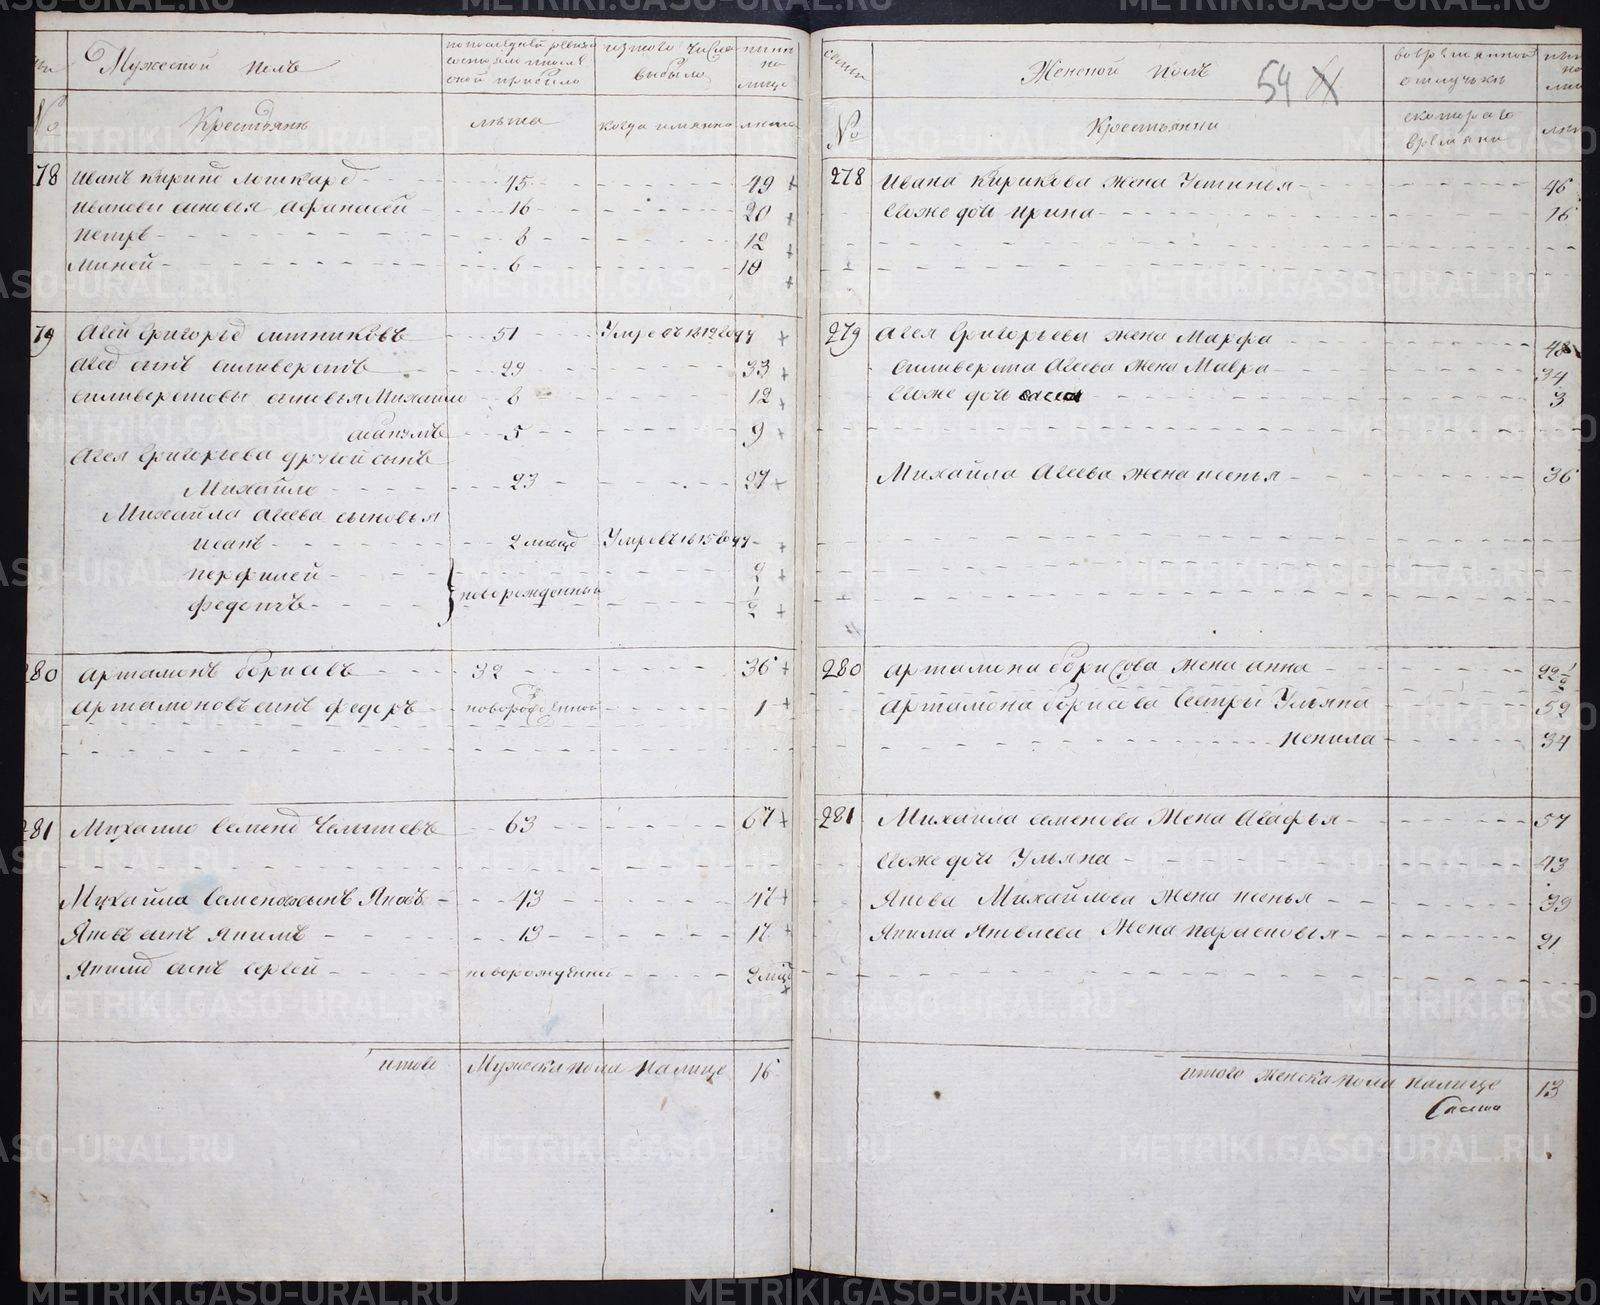 Мужеской полъ
по последней ревизи
состояло и после
оной прибыло
изтого число
выбыло
ныне
на
лицо
№
Крестьянъ
лѣта
когда имянно
лѣта
78 Иванъ Кирил Лошкаре 45 49
Ивановы сыновья Афанасей 16 20
Петръ 8 12
Миней 6 10
79 Агей Григорье Ситниковъ 51 Умре въ 1812 году
Агее сынъ Силиверстъ 29 33
Силиверстовы сыновья Михаило 8 12
5 9
Агея Григорьева другой сынъ
Михайло 23 27
Михайла Агеева сыновья
Иванъ 2 месец Умре въ 1815 году
Перфилей новорожденныи 2
Федотъ 1/2
280 Артамонъ Борисовъ 32 36
Артамоновъ сынъ Федоръ новорожденной 1
281 Михаило Семено Челышевъ 63 67
Михаила Семенова сынъ Яковъ 43 47
Яковъ сынъ Якимъ 13 17
Якима сынъ Сергей новорожденной 2 мес
итого Мужеска пола налице 16
семьи
Женской полъ
54
во временной
отлучьке
ныне
на
лицо
№
Крестьянки
скоторого
времяни
лѣт
278 Ивана Кирикова жена Устинья 46
Ево же дочь Ирина 16
279 Агея Григорьева жена Марфа 48
Силиверста Агеева жена Мавра 34
Ево же дочь 3
Михайла Агеева жена Ксенья 36
280 Артамона Борисова жена Анна 22 1/2
Артамона Борисова сестры Ульяна 52
Ненила 34
281 Михаила Семенова жена Агафья 57
Ево же дочь Ульяна 43
Якова Михайлова жена Ксенья 39
Якима Яковлева жена Парасковья 21
итого женска пола налице 13